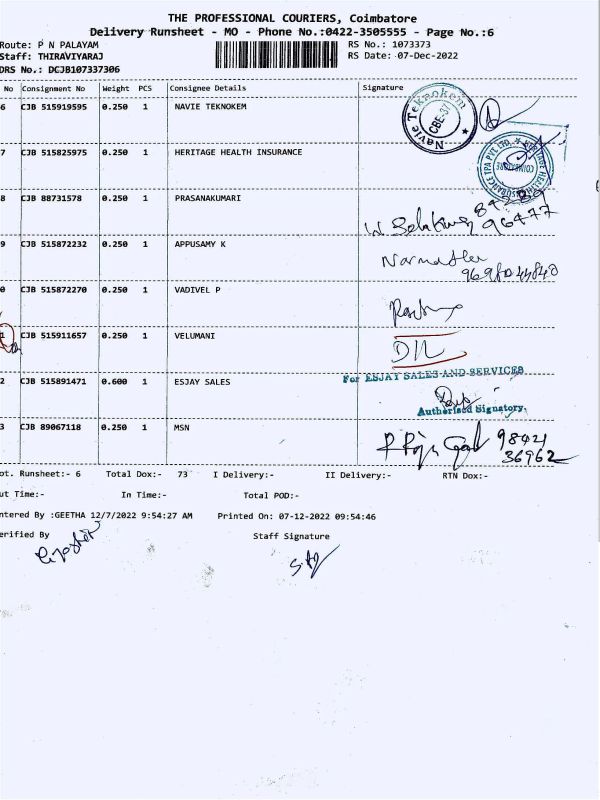 THE PROFESSIONAL COURIERS, Coimbatore
Delivery Runsheet - MO - Phone No.:0422-3505555 - Page No.:6
Route: P N PALAYAM
RS No.: 1073373
Staff: THIRAVIYARAJ
RS Date: 07-Dec-2022
DRS No.: DCJB107337306
No Consignment No Weight PCS Consignee Details Signature
6 CJB 515919595 0.250 1 NAVIE TEKNOKEM
Navie Teknokem
CBE-37
7 CJB 515825975 0.250 1 HERITAGE HEALTH INSURANCE
HERITAGE HEALTH INSURANCE TPA PVT LTD.
COIMBATORE
8 CJB 88731578 0.250 1 PRASANAKUMARI
96477
9 CJB 515872232 0.250 1 APPUSAMY K
Narmadha
0 CJB 515872270 0.250 1 VADIVEL P
1 CJB 515911657 0.250 1 VELUMANI
D/L
2 CJB 515891471 0.600 1 ESJAY SALES
For ESJAY SALES AND SERVICES
Authorised Signatory.
3 CJB 89067118 0.250 1 MSN
98421
36962
ot. Runsheet:- 6 Total Dox:- 73 I Delivery:- II Delivery:- RTN Dox:-
ut Time:- In Time:- Total POD:-
ntered By :GEETHA 12/7/2022 9:54:27 AM Printed On: 07-12-2022 09:54:46
erified By Staff Signature